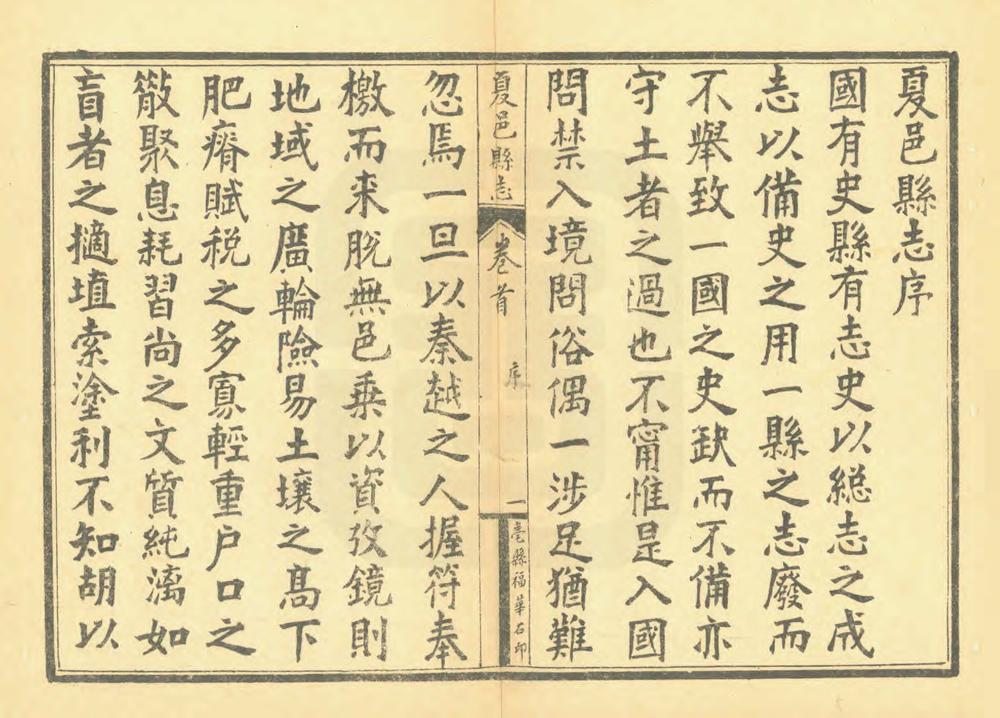 夏邑縣志序
國有史縣有志史以總志之成
志以備史之用一縣之志廢而
不舉致一國之史缺而不備亦
守土者之過也不甯惟是入國
問禁入境問俗偶一涉足猶難
夏邑縣志
卷首
序
一
亳縣福華石印
忽焉一旦以秦越之人握符奉
檄而来脫無邑乗以資攷鏡則
地域之廣輪險易土壤之高下
肥瘠賦稅之多寡輕重户口之
散聚息耗習尚之文質純漓如
盲者之擿埴索塗利不知胡以